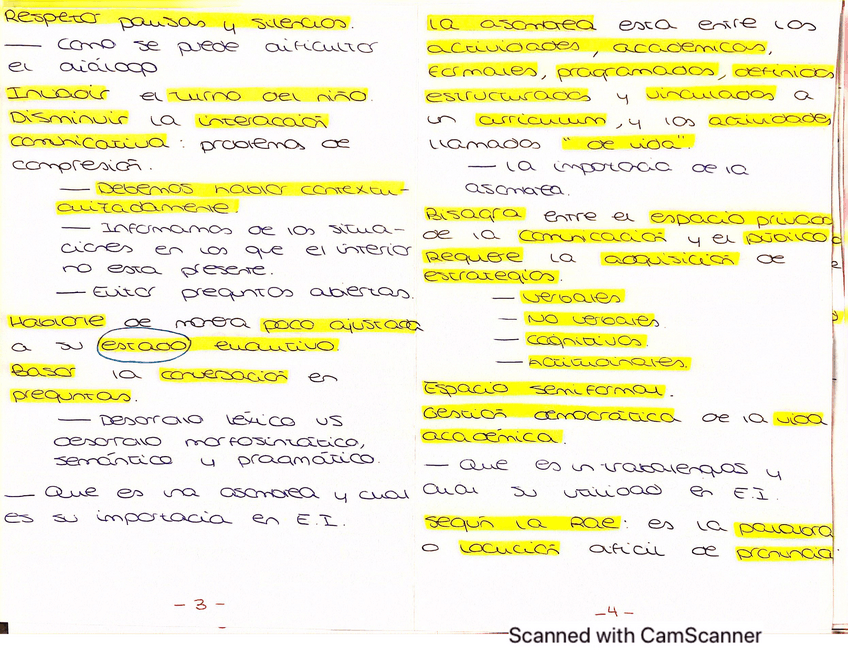 Respetar pausas y silencios.
— Como se puede dificultar
el diálogo
Invadir el turno del niño.
Disminuir la interacción
comunicativa: problemas de
compresión.
— Debemos hablar contextu-
alizadamente.
— Informamos de las situa-
ciones en las que el interior
no esta presente.
— Evitar preguntas abiertas.
Hablarle de manera poco ajustada
a su estado evolutivo.
Basar la conversación en
preguntas.
— Desarrollo léxico vs
desarrollo morfosintático,
semántico y pragmático.
— Que es una asamblea y cual
es su importacia en E.I.
- 3 -
La asamblea esta entre las
actividades, académicas,
formales, programadas, definidas
estructuradas y vinculadas a
un curriculum, y las actividades
llamadas "de vida".
— La importacia de la
asamblea.
Bisagra entre el espacio privado
de la comunicación y el público
Requiere la adquisición de
estrategias.
— Verbales
— No verbales.
— Cognitivas.
— Actitudinales.
Espacio semiformal.
Gestión democrática de la vida
académica.
— Que es un trabalenguas y
cual su utilidad en E.I.
Según la RAE: es la palabra
o locución dificil de pronuncia
- 4 -
Scanned with CamScanner